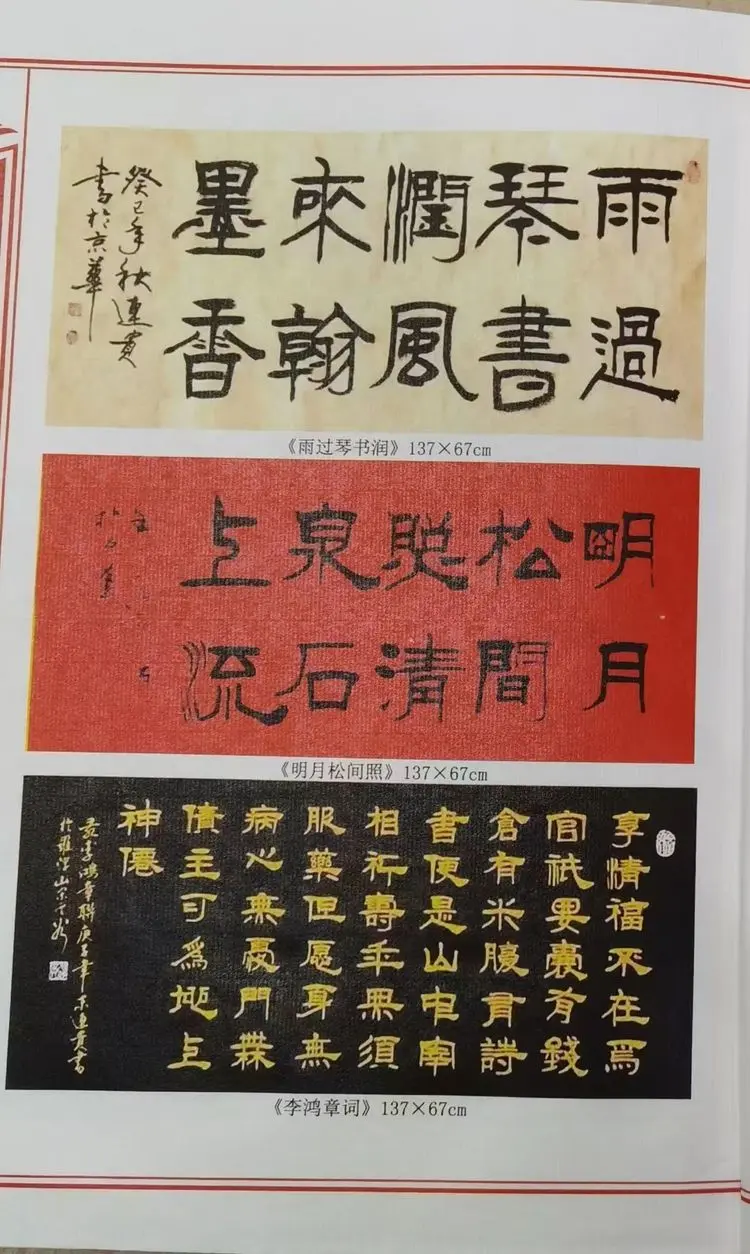 雨過
琴書
潤風
來翰
墨香
癸巳年秋連貫
書於京華
《雨过琴书润》137×67cm
明月
松間
照清
泉石
上流
《明月松间照》137×67cm
享清福不在爲
官祇要囊有錢
倉有米腹有詩
書便是山中宰
相祈壽年無須
服藥但愿身無
病心無憂門無
債主可爲地上
神僊
李鴻章聯庚子年連貫書
《李鸿章词》137×67cm